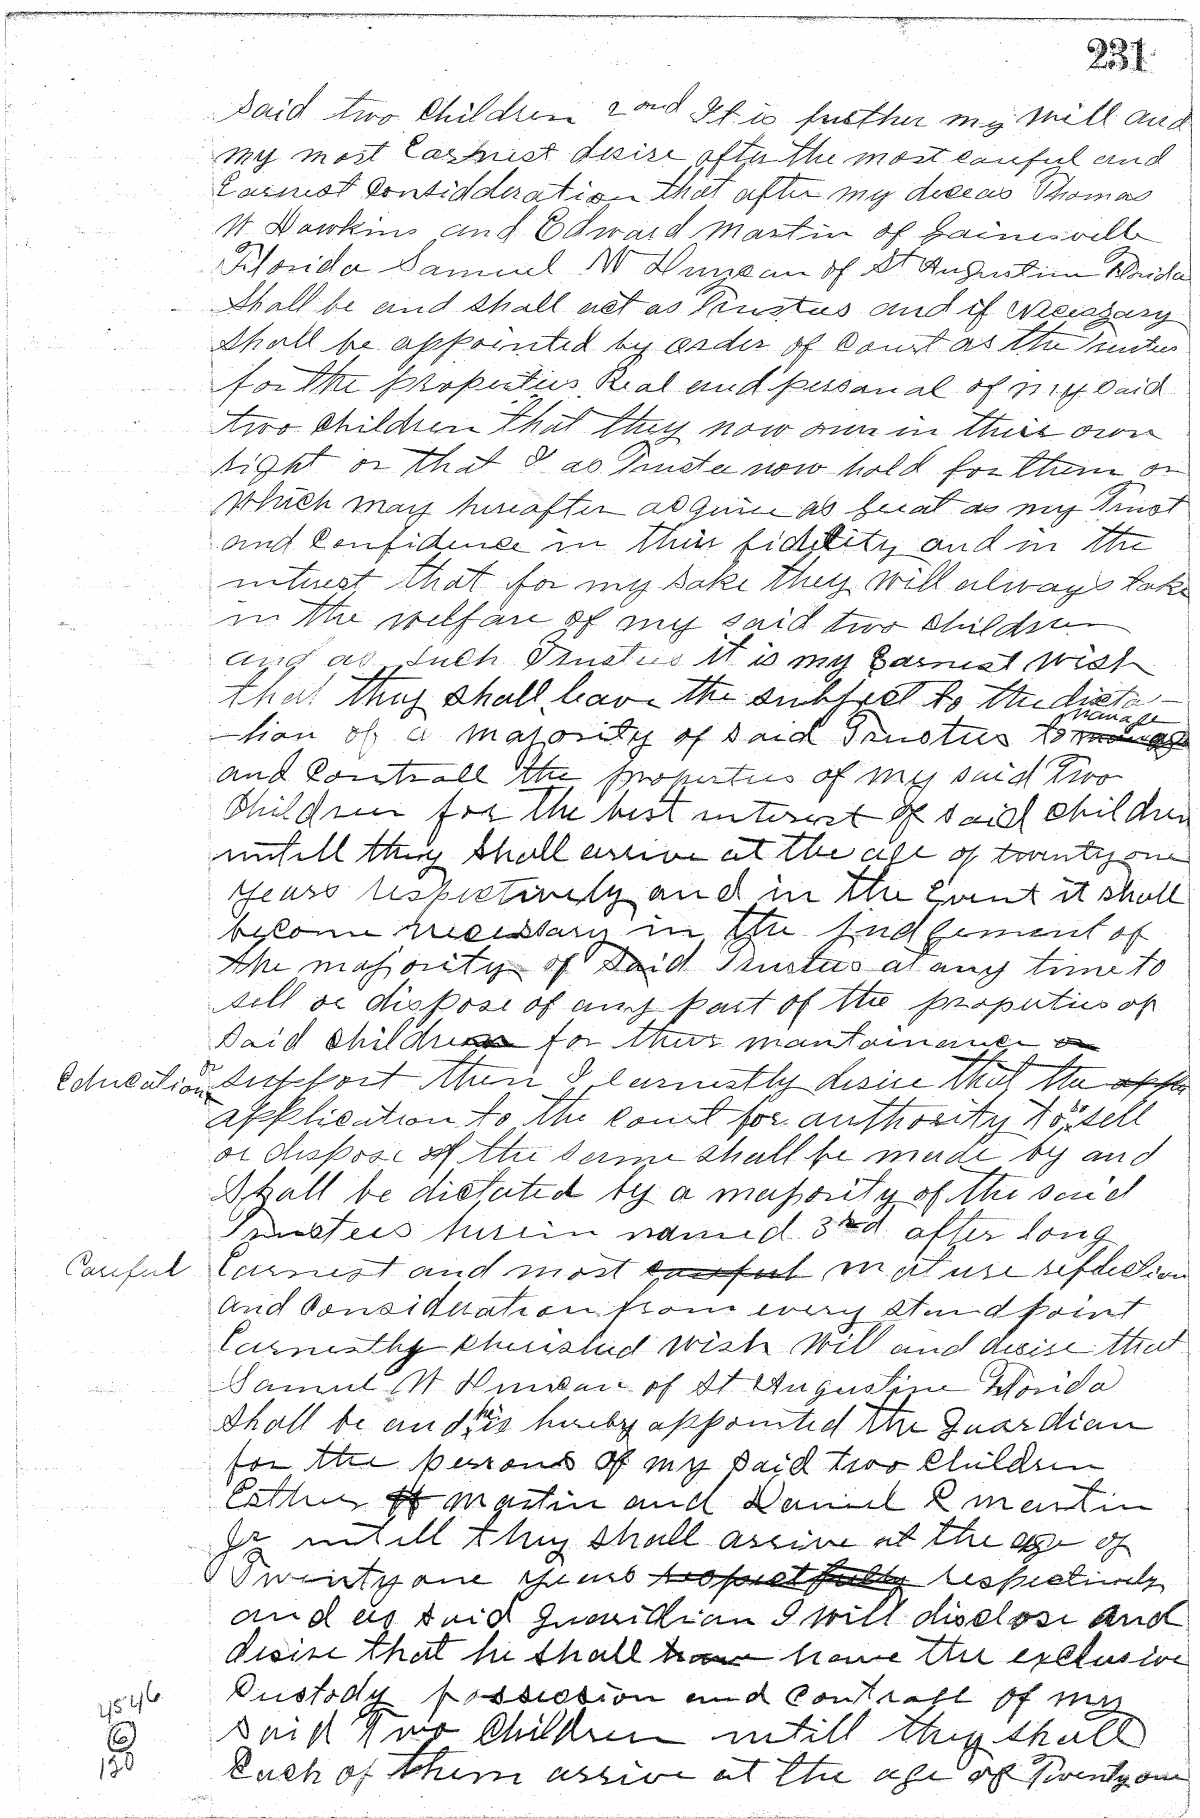 231
said two Children 2nd It is further my Will and
my most Earnest desire after the most careful and
Earnest Considderation that after my deceas Thomas
W Dawkins and Edward Martin of Gainesville
Florida Samuel W Duncan of St Augustine Florida
Shall be and shall act as Trustees and if Necessary
shall be appointed by order of Court as the Trustees
for the properties Real and personal of my said
two Children that they now own in their own
right or that I as Trustee now hold for them or
which may hereafter acquire as Great as my Trust
and Confidence in their fidelity and in the
interest that for my sake they will always take
in the welfare of my said two children
and as such Trustees it is my Earnest wish
that they shall leave the subject to the dicta-
-tion of a majority of said Trustees to manage
and Controll the properties of my said Two
Children for the best interest of said Children
untill they shall arrive at the age of twenty one
years respectively and in the Event it shall
become necessary in the judgement of
the majority of said Trustees at any time to
sell or dispose of any part of the properties of
said children for their mantainance or
Education or support then I earnestly desire that the
application to the court for authority to so sell
or dispose of the same shall be made by and
Shall be dictated by a majority of the said
Trustees herein named 3rd after long
Careful Earnest and most careful mature reflection
and Consideration from every standpoint
Earnestly cherished wish Will and desire that
Samuel W Duncan of St Augustine Florida
shall be and he is hereby appointed the Guardian
for the persons of my said two Children
Esther Martin and Daniel R Martin
Jr untill they shall arrive at the age of
Twenty one years respectfully respectively
and as said guardian I will disclose and
desire that he shall have have the exclusive
Custody possession and Controll of my
4546
6
130
said Two Children untill they shall
Each of them arrive at the age of Twenty one